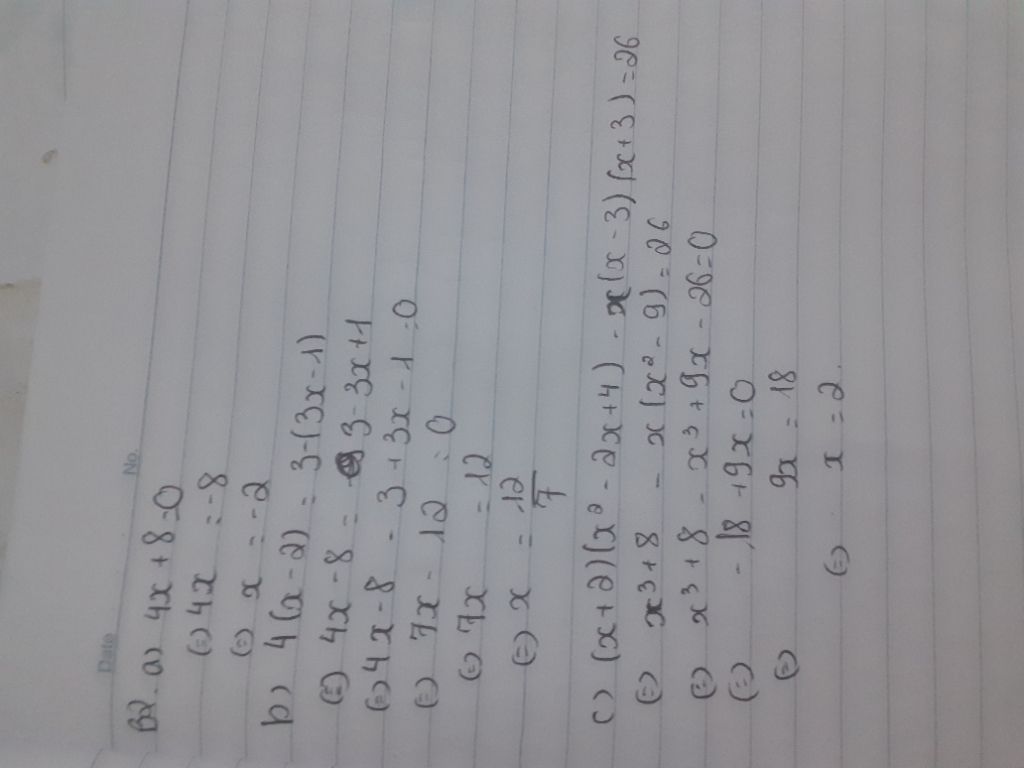 Date No.
B2. a) 4x + 8 = 0
(=) 4x = -8
(=) x = -2
b) 4(x - 2) = 3-(3x-1)
(=) 4x - 8 = 3 - 3x + 1
(=) 4x - 8 - 3 + 3x - 1 = 0
(=) 7x - 12 = 0
(=) 7x = 12
(=) x = 12/7
c) (x+2)(x² - 2x + 4) - x(x - 3)(x + 3) = 26
(=) x³ + 8 - x(x² - 9) = 26
(=) x³ + 8 - x³ + 9x - 26 = 0
(=) - 18 + 9x = 0
(=) 9x = 18
(=) x = 2.